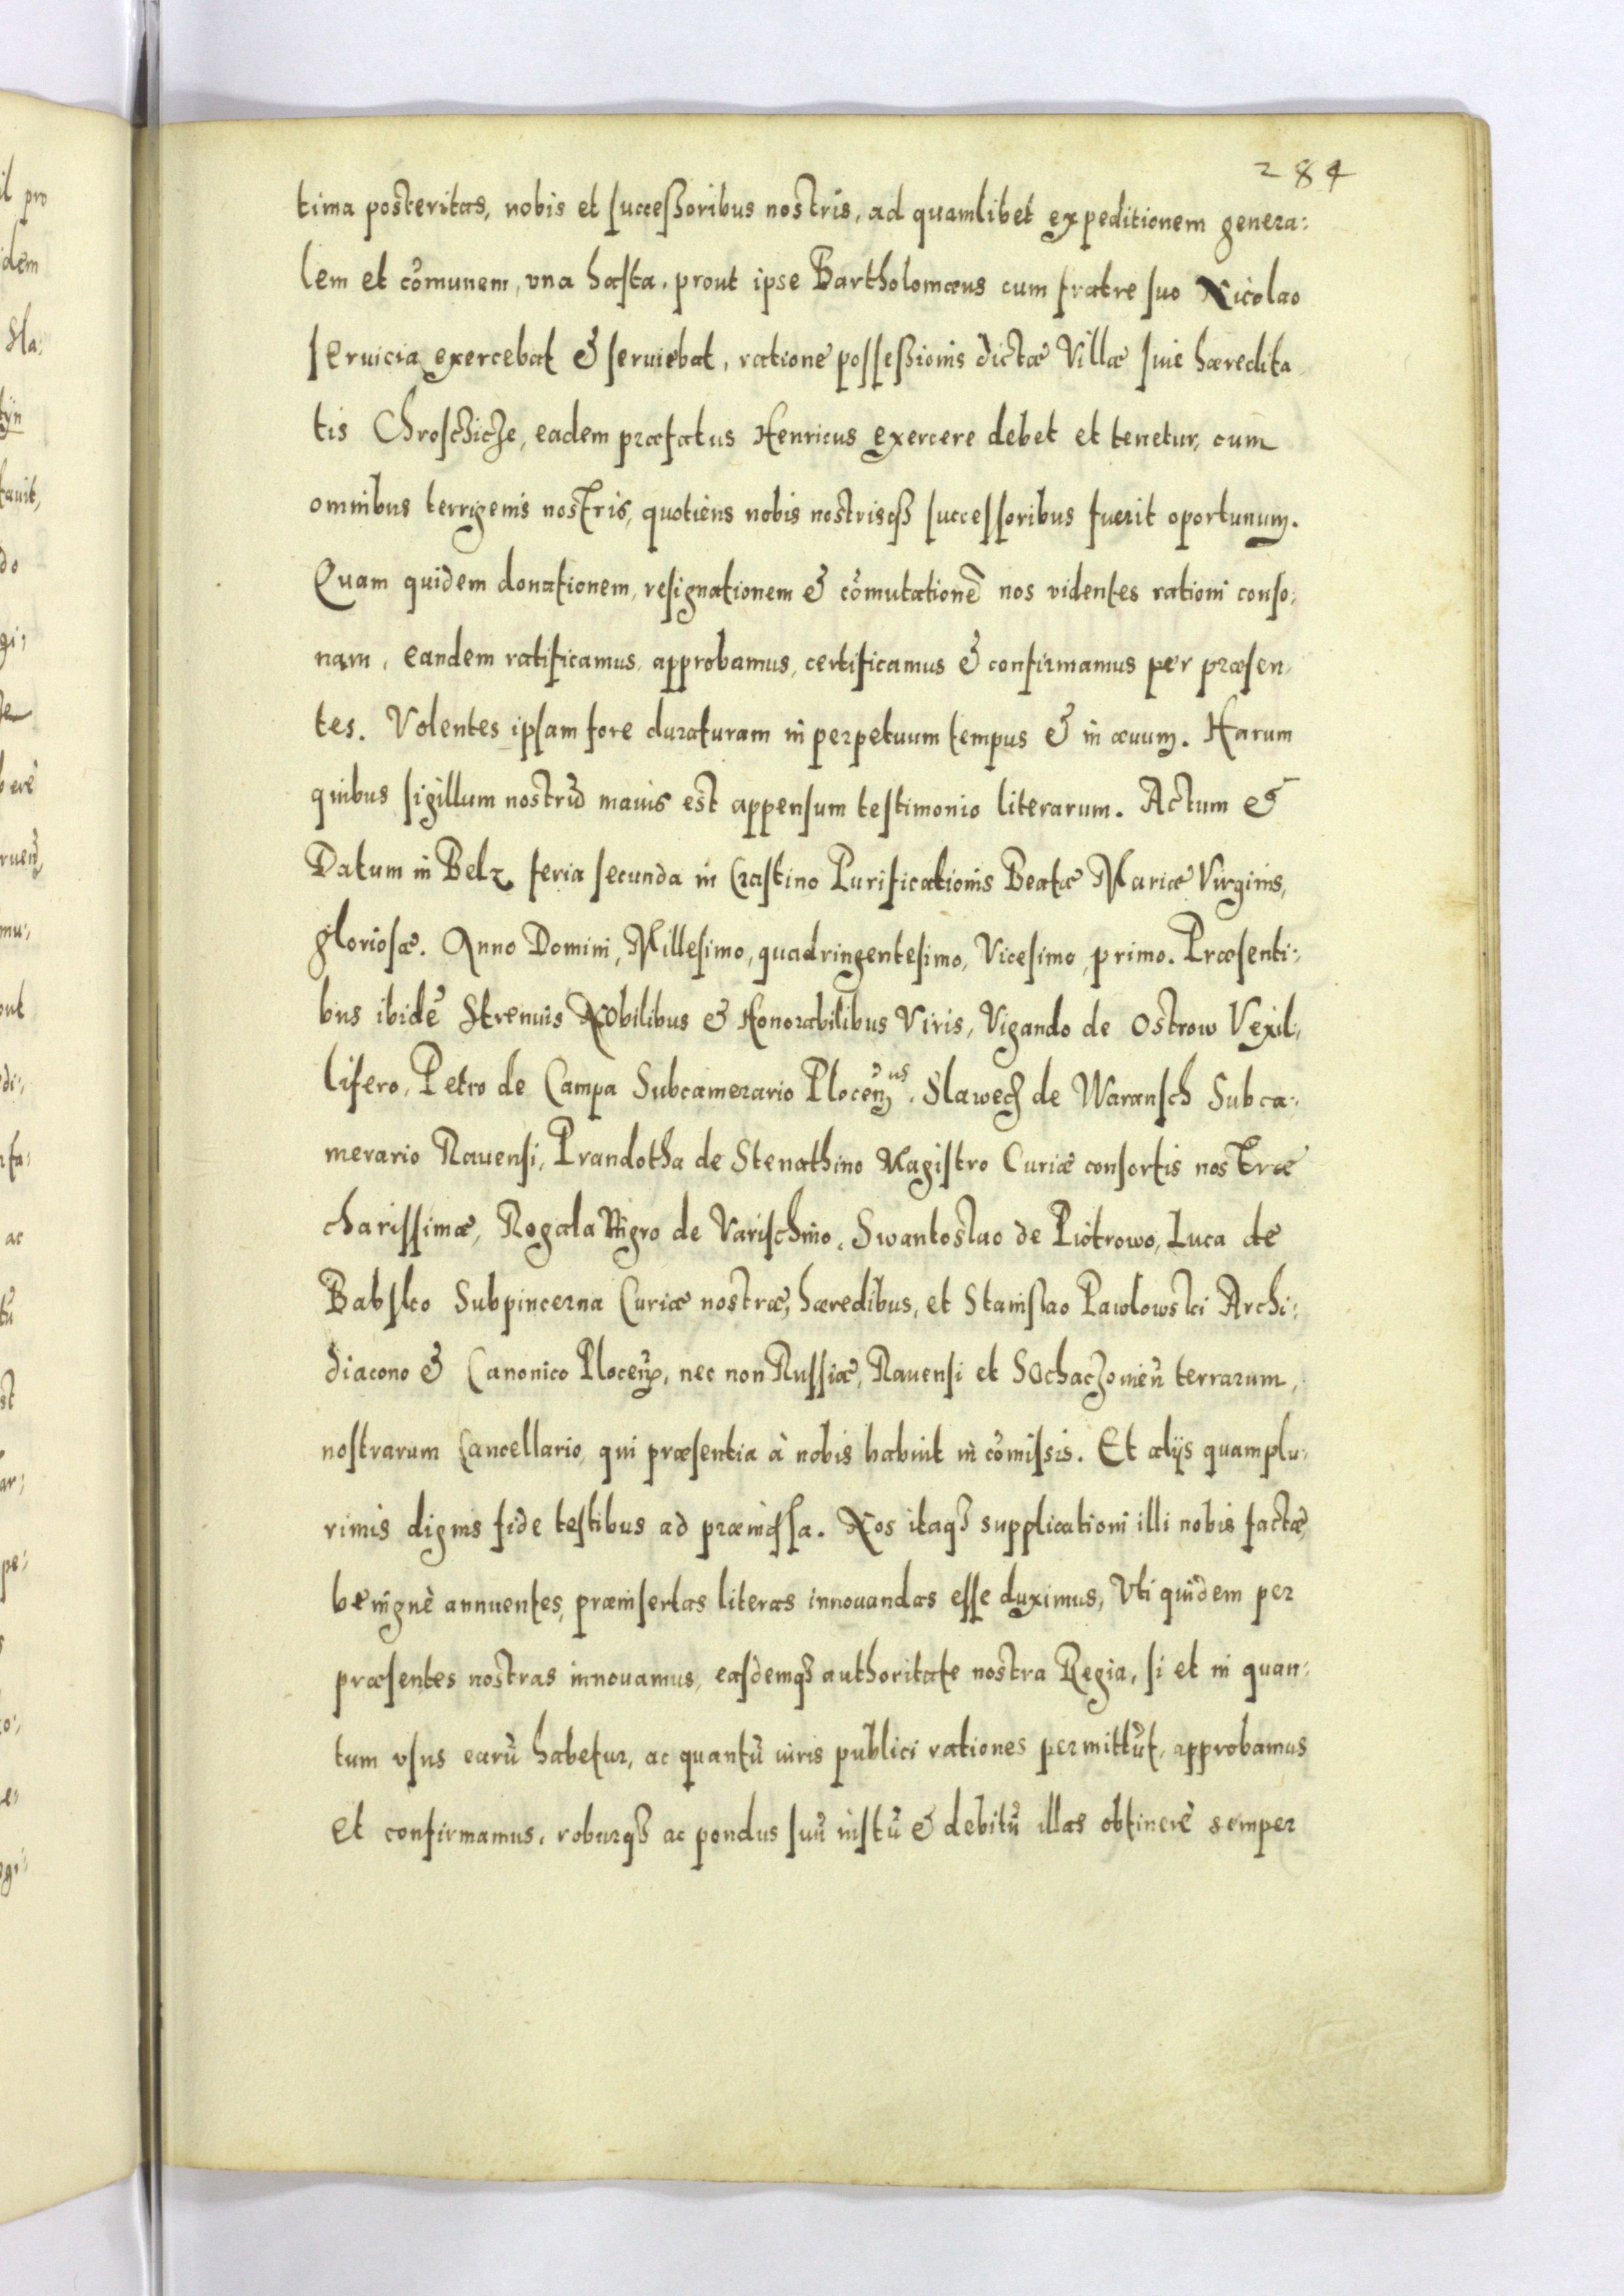 284
tima posteritas, nobis et successoribus nostris, ad quamlibet expeditionem genera:
lem et cõmunem, vna hasta. prout ipse Bartholomæus cum fratre suo Nicolao
seruicia exercebat & seruiebat, ratione possessionis dictæ Villæ siue hæredita
tis Chrosczicze, eadem præfatus Henricus exercere debet et tenetur, cum
omnibus terrigenis nostris, quotiens nobis nostrisq3 successoribus fuerit oportunum.
Quam quidem donationem, resignationem & cõmutationẽ nos videntes rationi conso:
nam, eandem ratificamus, approbamus, certificamus & confirmamus per præsen:
tes. Volentes ipsam fore duraturam in perpetuum tempus & in æuum. Harum
quibus sigillum nostrũ maius est appensum testimonio literarum. Actum &
Datum in Belz feria secunda in Crastino Purificationis Beatæ Mariæ Virginis,
gloriosæ. Anno Domini, Millesimo, quadringentesimo, Vicesimo, primo. Præsenti:
bus ibidẽ Strenuis Nobilibus & Honorabilibus Viris, Vigando de Ostrow Vexil:
lifero, Petro de Campa Subcamerario Plocen̄, Slawecz de Waransch Subca:
merario Rauensi, Prandotha de Stenathino Magistro Curiæ consortis nostræ
charissimæ, Rogala Nigro de Varischino, Swantoslao de Piotrowo, Luca de
Babsko Subpincerna Curiæ nostræ, hæredibus, et Stanislao Pawlowski Archi:
diacono & Canonico Plocen̄, nec non Russiæ, Rauensi et Sochaczouien̄ terrarum,
nostrarum Cancellario, qui præsentia à nobis habuit in cõmissis. Et alijs quamplu:
rimis dignis fide testibus ad præmissa. Nos itaq3 supplicationi illi nobis factæ,
benignè annuentes, præinsertas literas innouandas esse duximus, Vti quidem per
præsentes nostras innouamus, easdemq3 authoritate nostra Regia, si et in quan:
tum vsus earũ habetur, ac quantũ iuris publici rationes permittũt, approbamus
et confirmamus, roburq3 ac pondus suũ iustũ & debitũ illas obtinere semper